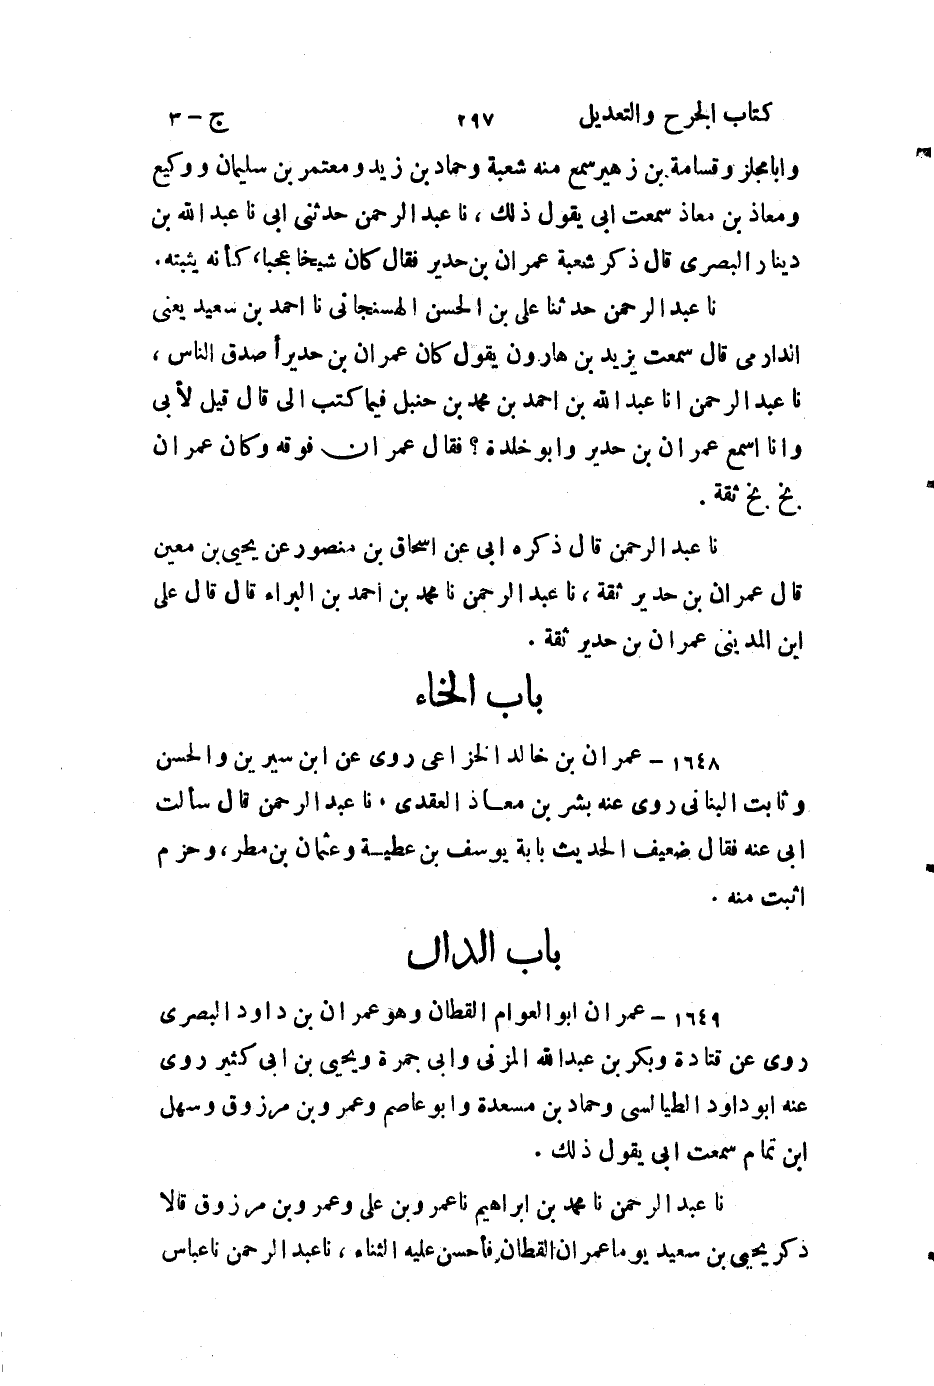 كتاب الجرح والتعديل ٢٩٧ ج - ٣
وابا مجلز وقسامة بن زهير سمع منه شعبة وحماد بن زيد ومعتمر بن سليمان ووكيع
ومعاذ بن معاذ سمعت ابى يقول ذلك ، نا عبد الرحمن حدثنى ابى نا عبد الله بن
دينار البصرى قال ذكر شعبة عمران بن حدير فقال كان شيخا عجبا، كأنه يثبته .
نا عبد الرحمن حدثنا على بن الحسن الهسنجانى نا احمد بن سعيد يعنى
الدارمى قال سمعت يزيد بن هارون يقول كان عمران بن حدير أصدق الناس ،
نا عبد الرحمن انا عبد الله بن احمد بن محمد بن حنبل فيما كتب الى قال قيل لأبى
وانا اسمع عمران بن حدير وابو خلدة ؟ فقال عمران فوقه وكان عمران
بخ بخ ثقة .
نا عبد الرحمن قال ذكره ابى عن اسحاق بن منصور عن يحيى بن معين
قال عمران بن حدير ثقة ، نا عبد الرحمن نا محمد بن أحمد بن البراء قال قال على
ابن المدينى عمران بن حدير ثقة .
باب الخاء
١٦٤٨ - عمران بن خالد الخزاعى روى عن ابن سيرين والحسن
وثابت البنانى روى عنه بشر بن معاذ العقدى . نا عبد الرحمن قال سألت
ابى عنه فقال ضعيف الحديث بابة يوسف بن عطية وعثمان بن مطر، وحزم
اثبت منه .
باب الدال
١٦٤٩ - عمران ابو العوام القطان وهو عمران بن داود البصرى
روى عن قتادة وبكر بن عبد الله المزنى وابى جمرة ويحيى بن ابى كثير روى
عنه ابو داود الطيالسى وحماد بن مسعدة وابو عاصم وعمرو بن مرزوق وسهل
ابن تمام سمعت ابى يقول ذلك .
نا عبد الرحمن نا محمد بن ابراهيم نا عمرو بن على وعمرو بن مرزوق قالا
ذكر يحيى بن سعيد يوما عمران القطان فأحسن عليه الثناء ، نا عبد الرحمن نا عباس